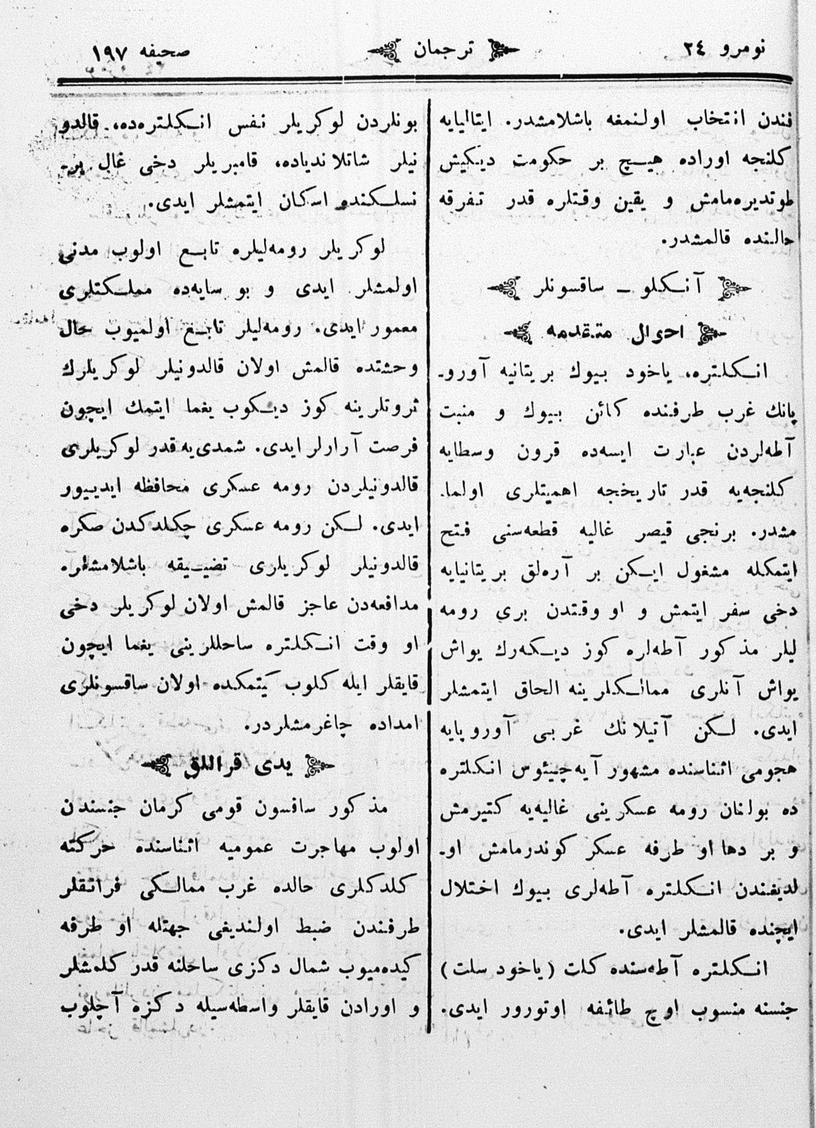 نومرو ٢٤
ترجمان
صحیفه ١٩٧
فندن انتخاب اولنمغه باشلامشدر. ایتالیایه
کلنجه اوراده هیچ بر حکومت دیکیش
طوتدیره‌مامش و یقین وقتلره قدر تفرقه
حالنده قالمشدر.
آنکلو ــ ساقسونلر
احوال متقدمه
انکلتره، یاخود بیوك بریتانیه آورو۔
پانك غرب طرفنده کائن بیوك و منبت
آطه‌لردن عبارت ایسه‌ده قرون وسطایه
کلنجه‌یه قدر تاریخجه اهمیتلری اولما۔
مشدر. برنجی قیصر غالیه قطعه‌سنی فتح
ایتمکله مشغول ایکن بر آره‌لق بریتانیایه
دخی سفر ایتمش و او وقتدن بری رومه
لیلر مذکور آطه‌لره کوز دیکه‌رك یواش
یواش آنلری ممالکلرینه الحاق ایتمشلر
ایدی. لکن آتیلانك غربی آوروپایه
هجومی اثناسنده مشهور آیه‌چیئوس انکلتره
ده بولنان رومه عسکرینی غالیه‌یه کتیرمش
و بر دها او طرفه عسکر کوندرمامش او۔
لدیغندن انکلتره آطه‌لری بیوك اختلال
ایچنده قالمشلر ایدی.
انکلتره آطه‌سنده کلت (یاخود سلت)
جنسنه منسوب اوچ طائفه اوتورور ایدی.
بونلردن لوکریلر نفس انکلتره‌ده، قالدو
نیلر شاتلاندیاده، قامبریلر دخی غال یر۔
نسلکنده اسکان ایتمشلر ایدی.
لوکریلر رومه‌لیلره تابع اولوب مدنی
اولمشلر ایدی و بو سایه‌ده مملکتلری
معمور ایدی. رومه‌لیلر تابع اولمیوب حال
وحشتده قالمش اولان قالدونیلر لوکریلرك
ثروتلرینه کوز دیکوب یغما ایتمك ایچون
فرصت آرارلر ایدی. شمدی‌یه قدر لوکریلری
قالدونیلردن رومه عسکری محافظه ایدییور
ایدی. لکن رومه عسکری چکلدکدن صکره
قالدونیلر لوکریلری تضییقه باشلامشلر.
مدافعه‌دن عاجز قالمش اولان لوکریلر دخی
او وقت انکلتره ساحللرینی یغما ایچون
قایقلر ایله کلوب کیتمکده اولان ساقسونلری
امداده چاغرمشلردر.
یدی قراللق
مذکور ساقسون قومی کرمان جنسندن
اولوب مهاجرت عمومیه اثناسنده حرکته
کلدکلری حالده غرب ممالکی فرانقلر
طرفندن ضبط اولندیغی جهتله او طرفه
کیده‌میوب شمال دکزی ساحلنه قدر کلمشلر
و اورادن قایقلر واسطه‌سیله دکزه آچلوب